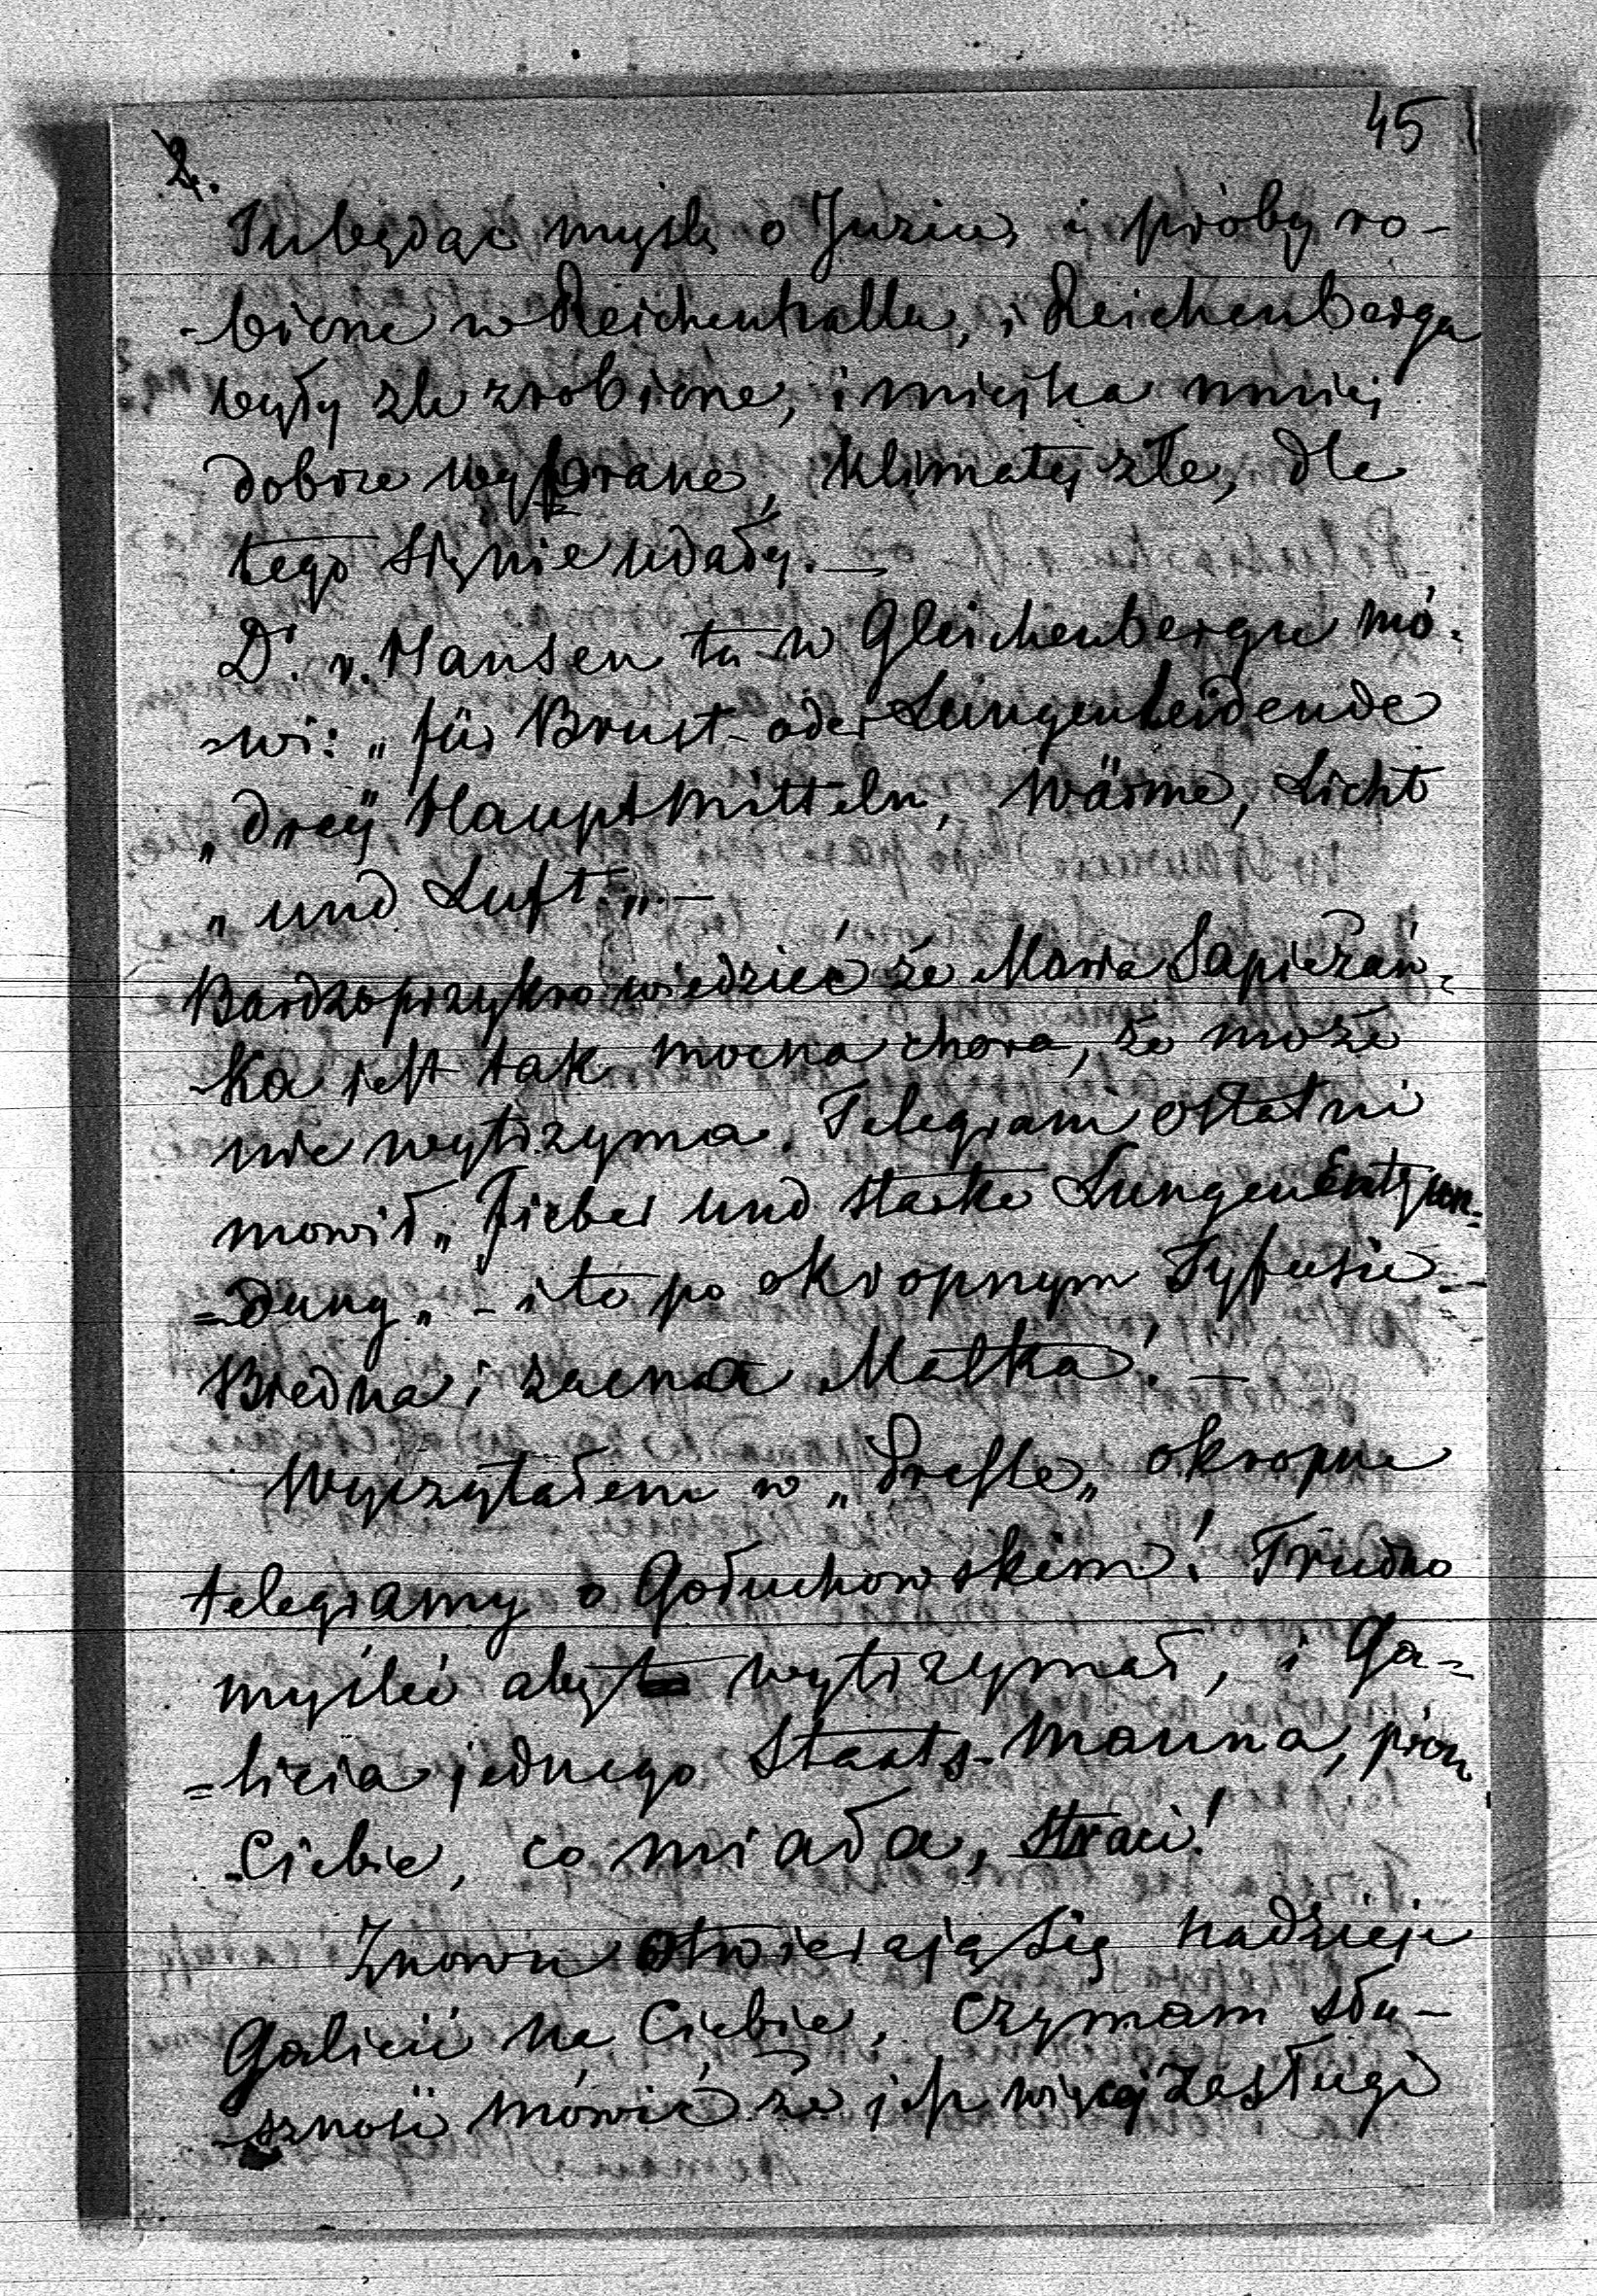 45
2.
Tu będąc myślę o Juziu, i próby ro-
-bione w Reichenhalla, i Reichenberga
były zle zrobione, i miejsca mniej
dobrze wybrane, klimaty złe, dla
tego się nie udały. —
Dr. v. Hansen tu w Gleichenbergu mó-
-wi: „für Brust- oder Lungenleidende
„dreÿ Hauptmitteln, Wärme, Licht
„und Luft.„ —
Bardzo przykro wiedzieć że Maria Sapieżan-
-ka jest tak mocna chora, że może
nie wytrzyma. Telegram ostatni
mowił „Fieber und starke Lungen Entzun-
=dung„ - i to po okropnym Tyfusie -
Biedna i zacna Matka! —
Wyczytałem w „Presse„ okropne
telegramy o Gołuchowskim! Trudno
myślić aby wytrzymał, i Ga-
=licia jednego Staats-Manna, prócz
Ciebie, co miała, straci!
Znowu otwierają się nadzieje
Galicii na Ciebie. Czy mam słu-
-sznośi mówić że jest więcej zasługi